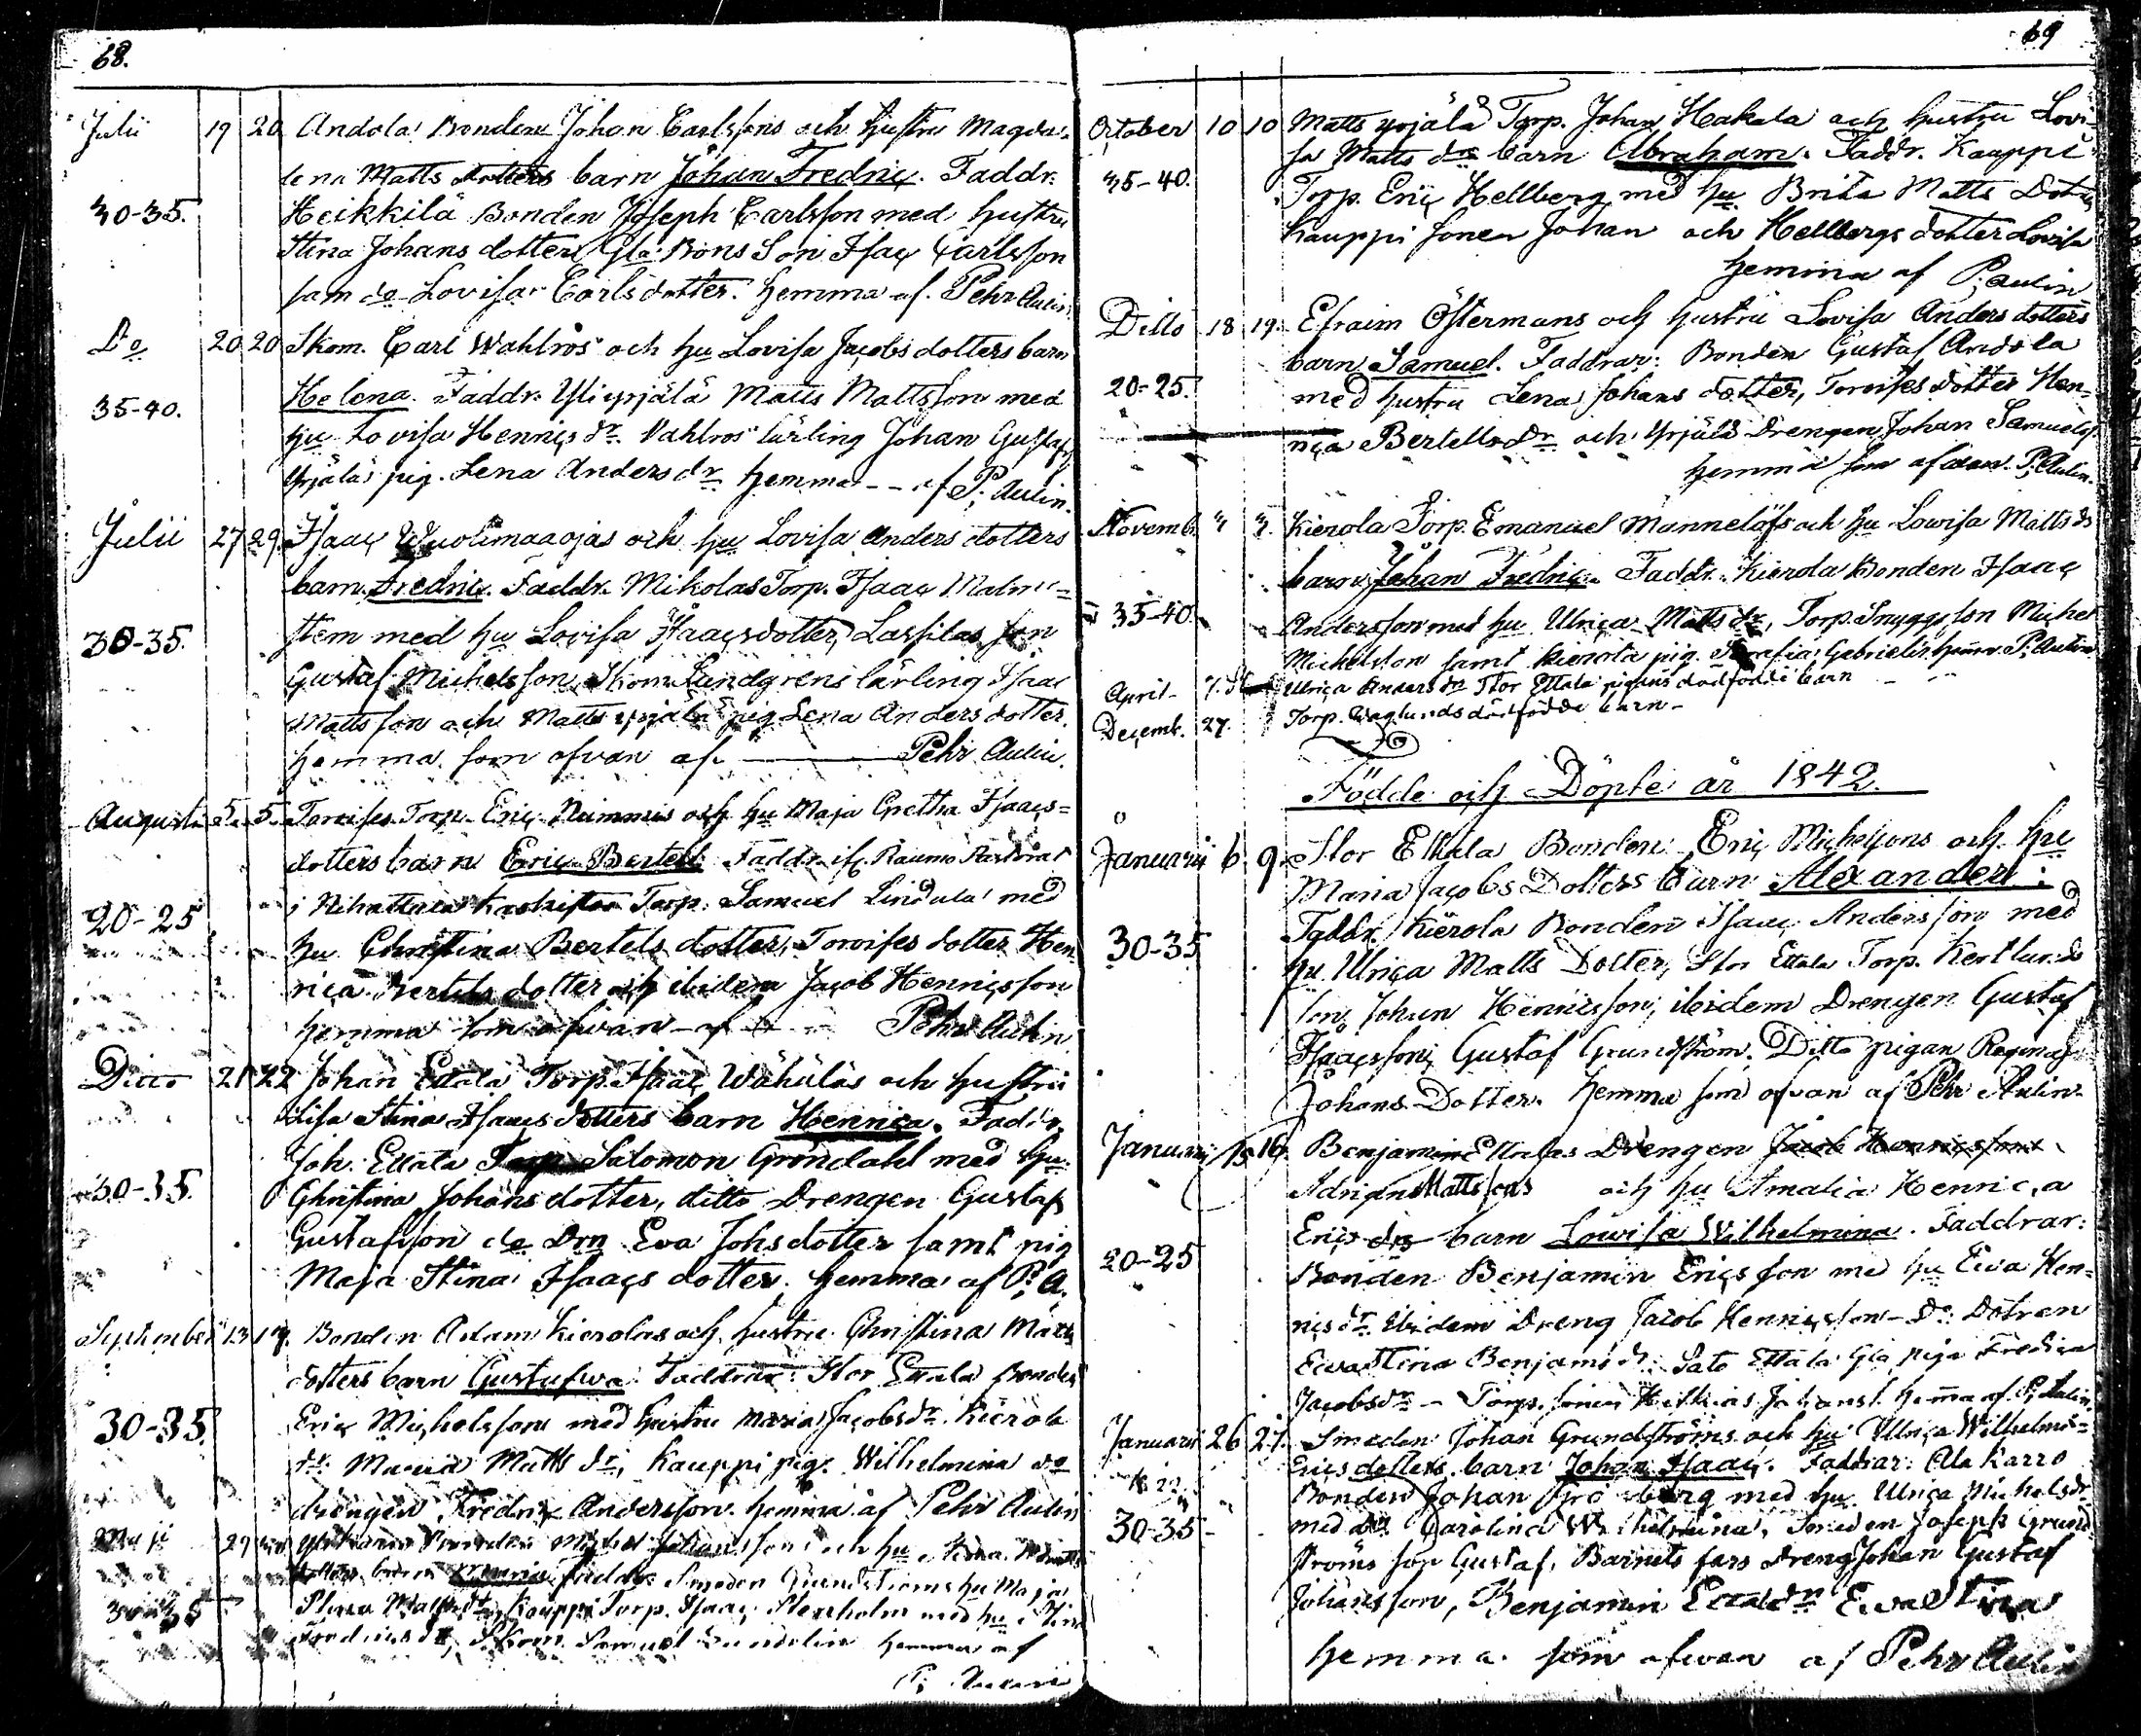 68.
Julii 19 20 Andola Bonden Johan Carlssons och hustru Magda-
lena Matts dotters barn Johan Fredric. Faddr.
30-35. Heikkilä Bonden Joseph Carlsson med hustru
Stina Johans dotter, Gla Bons Son Isaac Carlsson
sam do Lovisa Carlsdotter. hemma af. Pehr Aulin.
Do 20 20 Skom. Carl Wahlros och hu Lovisa Jacobs dotters barn
35-40. Helena. Faddr. Yliyrjälä Matts Mattsson med
hu Lovisa Henrics dr. Vahlros lärling Johan Gustafs
Yrjälä pig. Lena Anders dr hemma -- af P. Aulin.
Julii 27 29. Isaac Wuolimaaojas och hu Lovisa Anders dotters
barn Fredric. Faddr. Mikolas Torp. Isaac Malm-
30-35. stem med hu Lovisa Isaacsdotter, Lassilas son
Gustaf Michelsson, Skom Lundgrens lärling Isaac
Mattsson och Matts yrjälä pig Lena Anders dotter.
hemma som ofvan af. Pehr Aulin.
Augusti 5. 5. Torvises Torp. Eric Nummis och hu Maja Gretha Isaacs-
dotters barn Eric Bertell. Faddr. if. Raumo Pastorat
20-25 i Torp. Samuel Lindula med
hu Christina Bertels dotter, Torvises dotter Hen
rica Bertels dotter och ibidem Jacob Henricsson
hemma som ofvan af Pehr Aulin
Ditto 21 22 Johan Ettala Torp. Isaac Wähäläs och hustru
Lisa Stina Isaacs dotters barn Henrica. Faddr.
30-35. Joh. Ettala Torp Salomon Gröndahl med hu
Christina Johans dotter, ditto Drengen Gustaf
Gustafsson do Drn Eva Johsdotter samt pig
Maja Stina Isaacs dotter. hemma af P. A.
September 13 17. Bonden Adam Kierolas och hustru Christina Matts
dotters barn Gustafwa. Faddrar: Stor Ettala Bonden
30-35. Eric Michelsson med hustru Maria Jacobsdr. Kierola
dr. Maria Matts dr, Kauppi pig. Wilhelmina do
drengen Fredric Andersson. hemma af Pehr Aulin
Maji 29 Bonden Michel Johansson och hu Stina Matts
dotters barn Henric Faddr. Smeden Grundströms hu Maja
30-35 Stina Matts dr, Kauppi Torp. Isaac Stenholm med hu Stina
dr, Skom. Samuel Sundelin hemma af
P. Aulin
69
October 10 10 Matts yrjälä Torp. Johan Hakala och hustru Lovi-
sa Matts drs barn Abraham. Faddr. Kauppi
35-40. Torp. Eric Hellberg med hu Brita Matts Dotter
Kauppi sonen Johan och Hellbergs dotter Lovisa
hemma af P. Aulin
Ditto 18 19. Efraim Östermans och hustru Lovisa Anders dotters
barn Samuel. Faddrar: Bonden Gustaf Andola
20-25. med hustru Lena Johans dotter, Torvises dotter Hen-
rica Bertells dr och Yrjälä Drengen Johan Samuels.
hemma som ofvan. P. Aulin.
Novemb. Kierola Torp. Emanuel Mannelöfs och hu Lovisa Matts ds
barn Johan Fredric. Faddr. Kierola Bonden Isaac
35-40. Andersson med hu Ulrica Matts dr, Torp. Snyggs son Michel
Michelsson samt Kierola pig. Sofia Gabrielsd. hemma. P. Aulin
April Ulrica Anders dr Stor Ettala pigans dödfödde barn
Decemb. 27. Torp. Waglunds dödfödde barn -
Födde och Döpte år 1842.
Januarii 6 9. Stor Ettala Bonden Eric Michelsons och hu
Maria Jacobs Dotters barn Alexander.
30-35 Faddr. Kierola Bonden Isaac Andersson med
hu Ulrica Matts Dotter, Stor Ettala Torp. Kertlunds
son Johan Henricsson, ibidem Drengen Gustaf
Isacsson, Gustaf Grundström. Ditto pigan Regina
Johans Dotter. hemma som ofvan af Pehr Aulin.
Januarii 15 16. Benjamin Ettalas Drengen Jacob Henricssons
Adrian Mattssons och hu Amalia Henrica
Erics drs barn Lovisa Wilhelmina. Faddrar:
20-25 Bonden Benjamin Ericsson med hu Eva Hen-
rics dr. Ibidem Dreng Jacob Henricsson - Do Dotren
Ewa Stina Benjams dr. Sato Ettala Gla piga Fredica
Jacobs dr - Torp. sonen Johans s. hemma af P. Aulin.
Januarii 26 27. Smeden Johan Grundströms och hu Ulrica Wilhelmi-
Erics dotters barn Johan Isaac. Faddrar: Ala Karro
Bonden Johan med hu Ulrica Michelsdr
30-35 med dr. Carolina Wilhelmina, Smeden Joseph Grund
ströms son Gustaf, Barnets fars Dreng Johan Gustaf
Johansson, Benjamin Ettala dr Ewa Stina
hemma som ofwan af Pehr Aulin